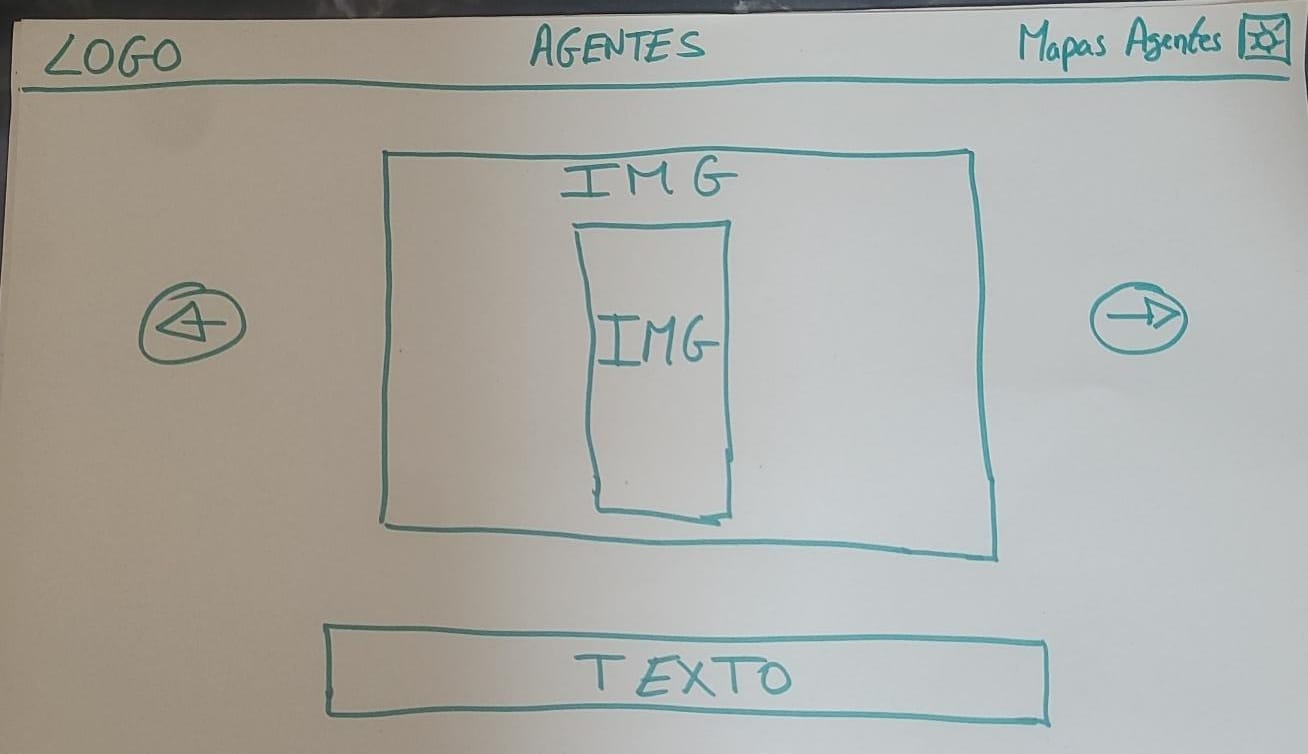 LOGO AGENTES Mapas Agentes
IMG
IMG
TEXTO